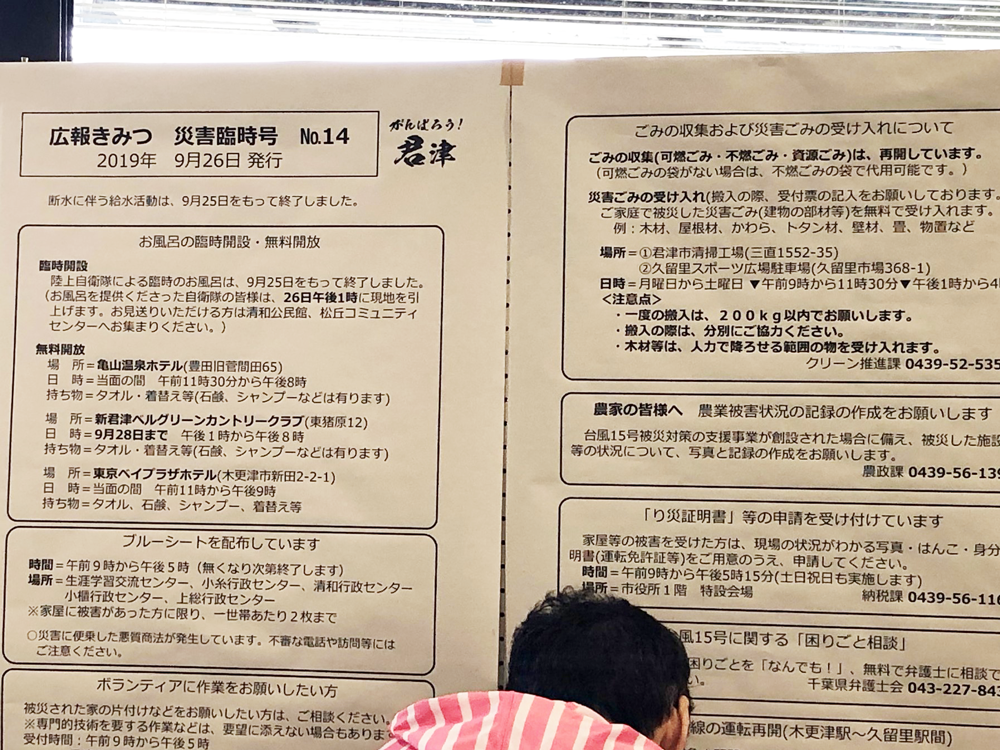 広報きみつ　災害臨時号　No.14
2019年　9月26日 発行
がんばろう!
君津
断水に伴う給水活動は、9月25日をもって終了しました。
お風呂の臨時開設・無料開放
臨時開設
陸上自衛隊による臨時のお風呂は、9月25日をもって終了しました。
(お風呂を提供くださった自衛隊の皆様は、26日午後1時に現地を引
上げます。お見送りいただける方は清和公民館、松丘コミュニティ
センターへお集まりください。)
無料開放
場　所＝亀山温泉ホテル(豊田旧菅間田65)
日　時＝当面の間　午前11時30分から午後8時
持ち物＝タオル・着替え等(石鹸、シャンプーなどは有ります)
場　所＝新君津ベルグリーンカントリークラブ(東猪原12)
日　時＝9月28日まで　午後１時から午後８時
持ち物＝タオル・着替え等(石鹸、シャンプーなどは有ります)
場　所＝東京ベイプラザホテル(木更津市新田2-2-1)
日　時＝当面の間　午前11時から午後9時
持ち物＝タオル、石鹸、シャンプー、着替え等
ブルーシートを配布しています
時間＝午前９時から午後５時（無くなり次第終了します）
場所＝生涯学習交流センター、小糸行政センター、清和行政センター
小櫃行政センター、上総行政センター
※家屋に被害があった方に限り、一世帯あたり２枚まで
○災害に便乗した悪質商法が発生しています。不審な電話や訪問等には
ご注意ください。
ボランティアに作業をお願いしたい方
被災された家の片付けなどをお願いしたい方は、ご相談ください。
※専門的技術を要する作業などは、要望に添えない場合もありま
受付時間：午前９時から午後５時
ごみの収集および災害ごみの受け入れについて
ごみの収集(可燃ごみ・不燃ごみ・資源ごみ)は、再開しています。
（可燃ごみの袋がない場合は、不燃ごみの袋で代用可能です。）
災害ごみの受け入れ(搬入の際、受付票の記入をお願いしております。
ご家庭で被災した災害ごみ(建物の部材等)を無料で受け入れます。
例：木材、屋根材、かわら、トタン材、壁材、畳、物置など
場所＝①君津市清掃工場(三直1552-35)
②久留里スポーツ広場駐車場(久留里市場368-1)
日時＝月曜日から土曜日 ▼午前9時から11時30分▼午後1時から4
＜注意点＞
・一度の搬入は、２００ｋｇ以内でお願いします。
・搬入の際は、分別にご協力ください。
・木材等は、人力で降ろせる範囲の物を受け入れます。
クリーン推進課 0439-52-535
農家の皆様へ　農業被害状況の記録の作成をお願いします
台風15号被災対策の支援事業が創設された場合に備え、被災した施設
等の状況について、写真と記録の作成をお願いします。
農政課 0439-56-139
「り災証明書」等の申請を受け付けています
家屋等の被害を受けた方は、現場の状況がわかる写真・はんこ・身分
明書(運転免許証等)をご用意のうえ、申請してください。
時間＝午前9時から午後5時15分(土日祝日も実施します)
場所＝市役所１階　特設会場　納税課 0439-56-116
風15号に関する「困りごと相談」
困りごとを「なんでも！」、無料で弁護士に相談で
い。　千葉県弁護士会 043-227-843
線の運転再開(木更津駅～久留里駅間)